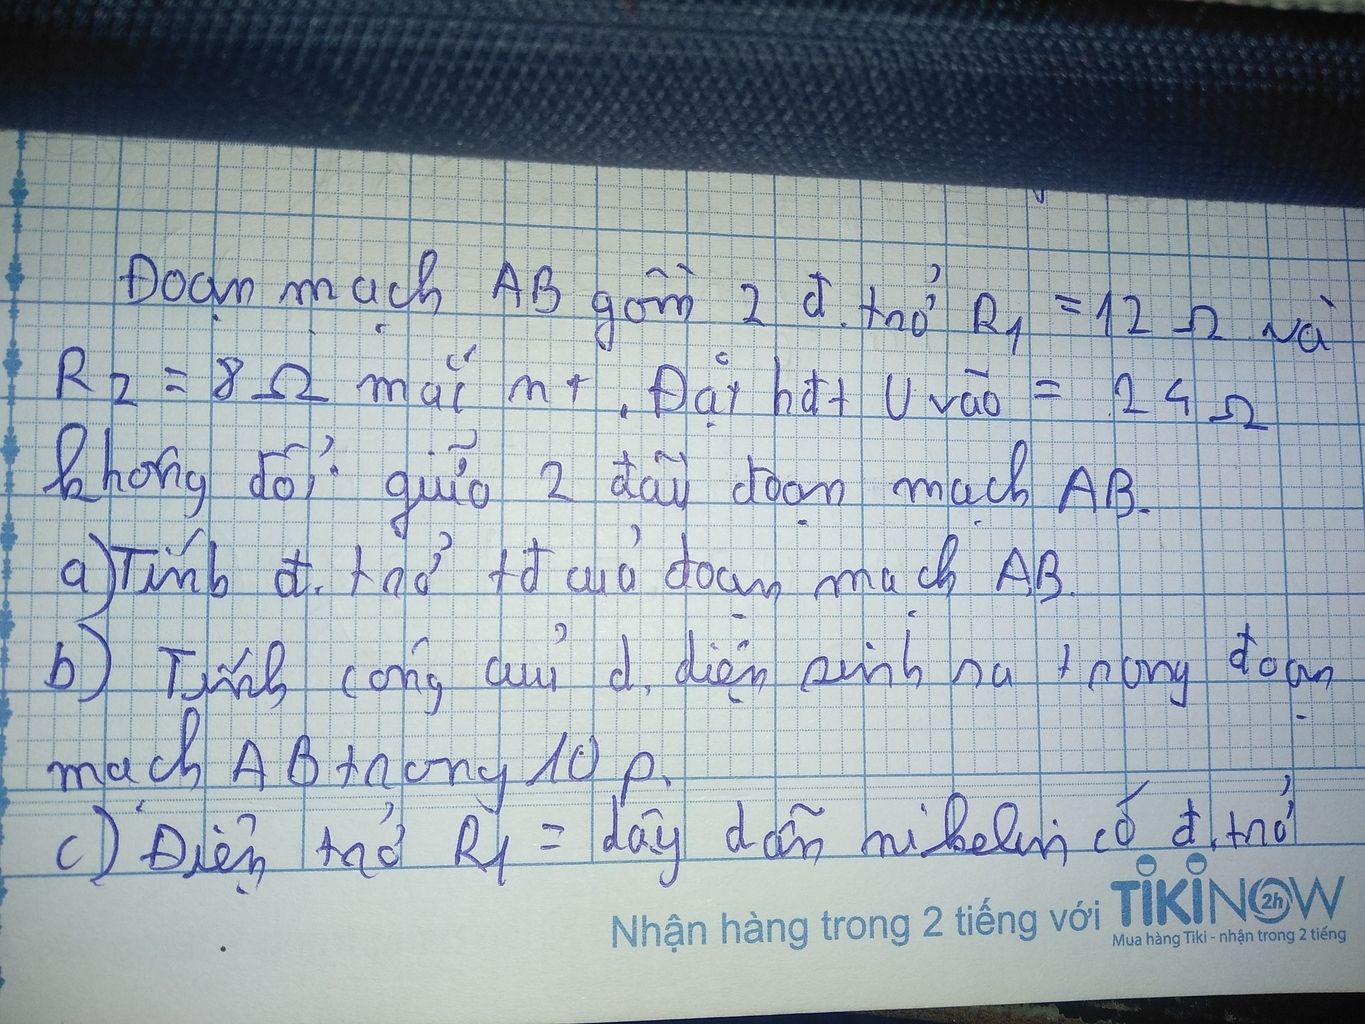 Đoạn mạch AB gồm 2 đ.trở R1 = 12 Ω và
R2 = 8 Ω mắc nt. Đặt hđt U vào = 24 Ω
không đổi giữa 2 đầu đoạn mạch AB.
a) Tính đ.trở tđ của đoạn mạch AB.
b) Tính công của d. điện sinh ra trong đoạn
mạch AB trong 10 p.
c) Điện trở R1 = dây dẫn nikelin có đ.trở
Nhận hàng trong 2 tiếng với TIKINOW 2h
Mua hàng Tiki - nhận trong 2 tiếng